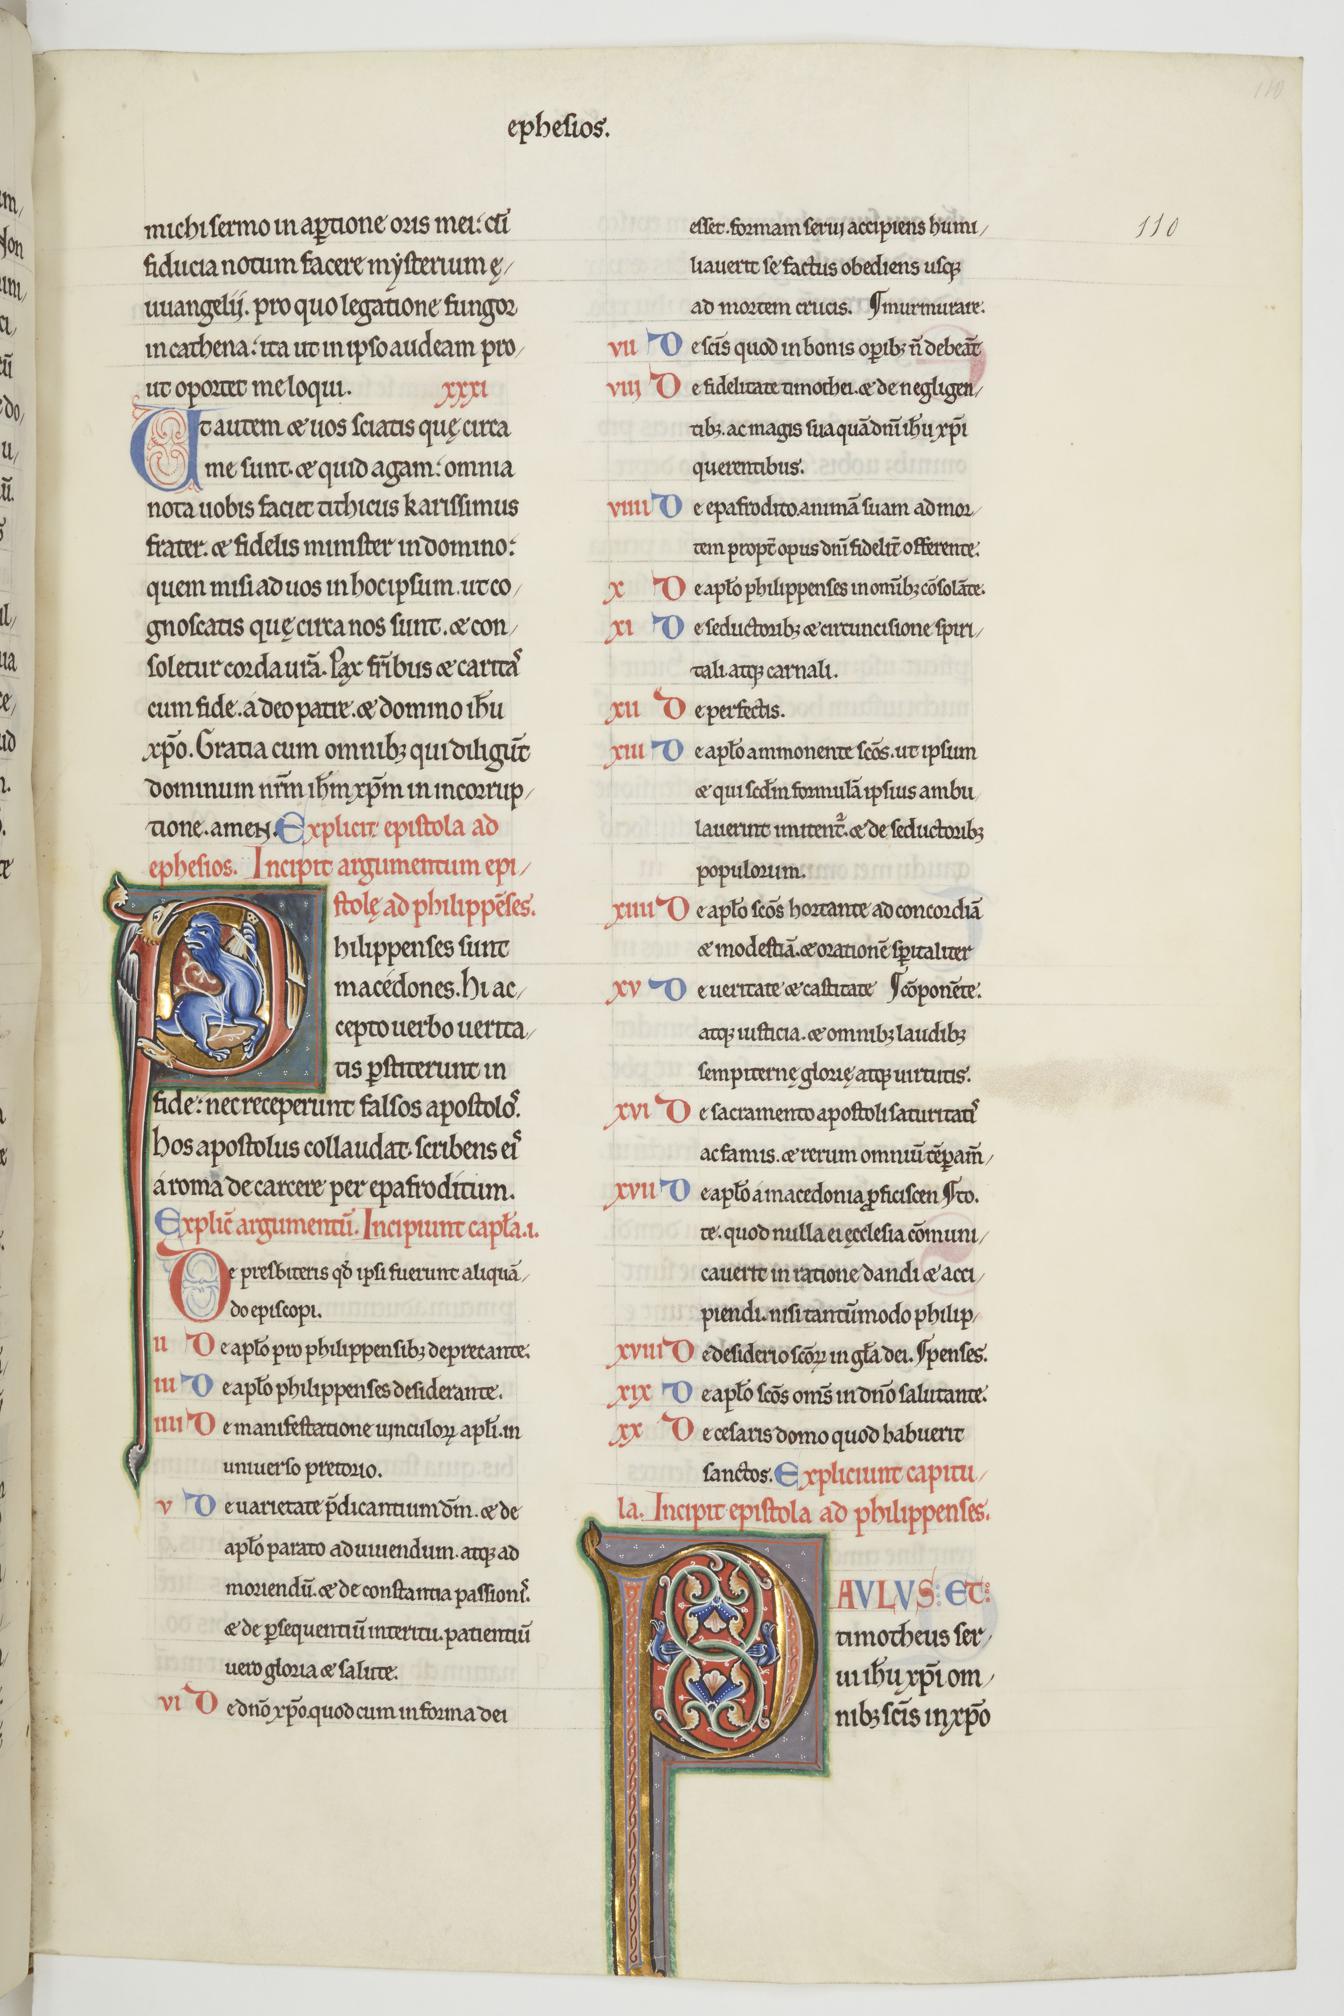 ephesios.
110
110
michi sermo in aꝑtione oris mei: cū
fiducia notum facere mẏsterium ę/
uuangelij. pro quo legatione fungor
in cathena: ita ut in ipso audeam pro/
ut oportet me loqui. xxxi
Ut autem & uos sciatis quę circa
me sunt. & quid agam: omnia
nota uobis faciet tithicus karissimus
frater. & fidelis minister in domino:
quem misi ad uos in hoc ipsum. ut co/
gnoscatis quę circa nos sunt. & con/
soletur corda ur̄a. Pax fr̄ibus & caritas
cum fide. á deo patre. & domino ih̄u
xp̄o. Gratia cum omnibꝫ qui diligūt
dominum nr̄m ih̄m xp̄m in incorrup/
tione. amen. Explicit epistola ad
ephesios. Incipit argumentum epi/
stolę ad philippēses.
Philippenses sunt
macédones. hi ac/
cepto uerbo uerita/
tis ꝑstiterunt in
fide: nec receperunt falsos apostolos.
hos apostolus collaudat. scribens eis
á romā de carcere per epafroditum.
Explic̄ argumentū. Incipiunt capl̄a. i.
De presbiteris qd̄ ipsi fuerunt aliquā/
do episcopi.
ii De apl̄o pro philippensibꝫ deprecante.
iii De apl̄o philippenses desiderante.
iiii De manifestatione uinculoꝝ apl̄i. in
uniuerso pretorio.
v De uarietate p̄dicantium dm̄. & de
apl̄o parato ad uiuendum. atqꝫ ad
moriendū. & de constantia passionis.
& de ꝑsequentiū interitu. patientiū
uero gloria & salute.
vi De dn̄o xp̄o. quod cum in forma dei
esset. formam serui accipiens humi/
liauerit se factus obediens usqꝫ
ad mortem crucis. ¶murmurare.
vii De scīs quod in bonis oꝑibꝫ n̄ debeāt
viij De fidelitate timothei. & de negligen/
tibꝫ. ac magis sua quā dn̄i ih̄u xp̄i
querentibus.
viiii De epafrodito. animā suam ad mor/
tem propt̄ opus dn̄i fidelit̄ offerente.
x De apl̄o philippenses in omībꝫ cōsolāte.
xi De seductoribꝫ & circuncisione spiri/
tali. atqꝫ carnali.
xii De perfectis.
xiii De apl̄o ammonente sc̄os. ut ipsum
& qui scd̄m formulā ipsius ambu/
lauerint imitent᷑. & de seductoribꝫ
populorum.
xiiii De apl̄o sc̄os hortante ad concordiā
& modestiā. & orationē sp̄italiter
xv De ueritate & castitate ¶cōponēte.
atqꝫ iusticia. & omnibꝫ laudibꝫ
sempiternę glorię atqꝫ uirtutis.
xvi De sacramento apostoli saturitatis
ac famis. & rerum omniū tēꝑam̄/
xvii De apl̄o á macedonia ꝓficiscen ¶to.
te. quod nulla ei ęcclesia cōmuni/
cauerit in ratione dandi & acci/
piendi. nisi tantūmodo philip/
xviii De desiderio sc̄oꝝ in gl̄a dei. ¶penses.
xix De apl̄o sc̄os om̄s in dn̄o salutante.
xx De cesaris domo quod habuerit
sanctos. Expliciunt capitu/
la. Incipit epistola ad philippenses.
PAULUS: ET:
timotheus ser/
ui ih̄u xp̄i om/
nibꝫ scīs in xp̄o